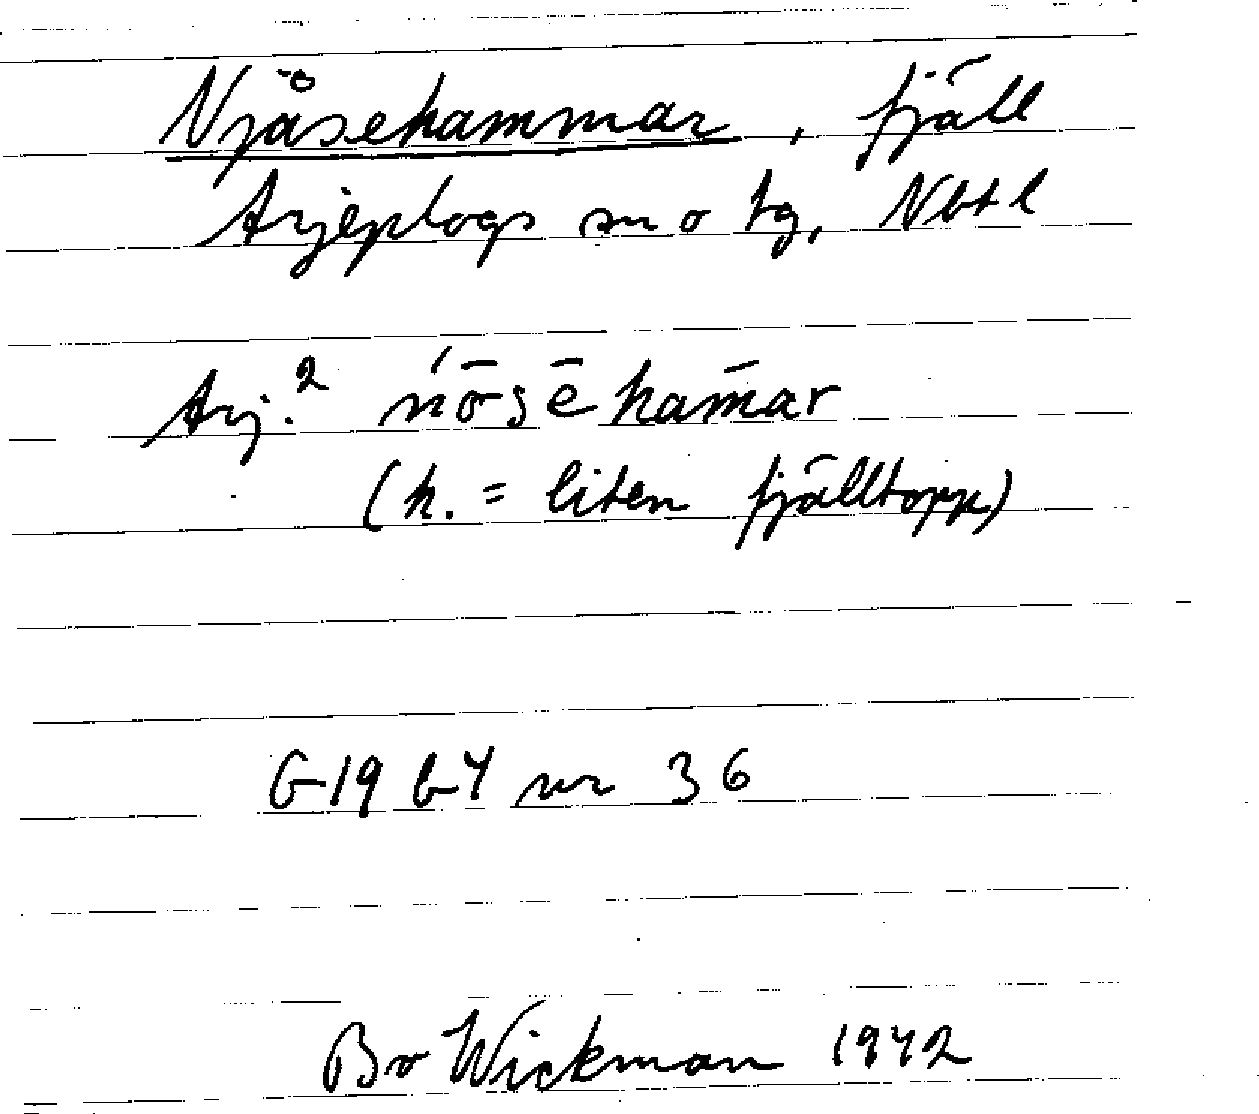 Njåsehammar, fjäll
Arjeplogs sn o tg, Nbtl
Arj.² ńōsēham̄ar
(h. = liten fjälltopp)
G 19 b4 nr 36
Bo Wickman 1942